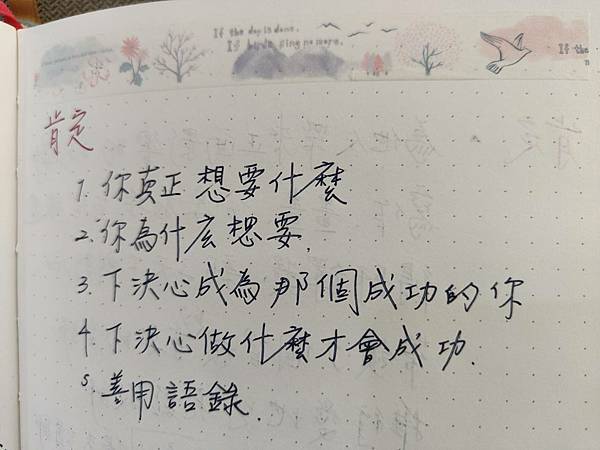 If the day is done.
If birds sing no more.
If the
肯定
1. 你真正想要什麼
2. 你為什広想要.
3. 下決心成為那個成功的你
4 下決心做什麼才會成功.
5. 善用語錄.